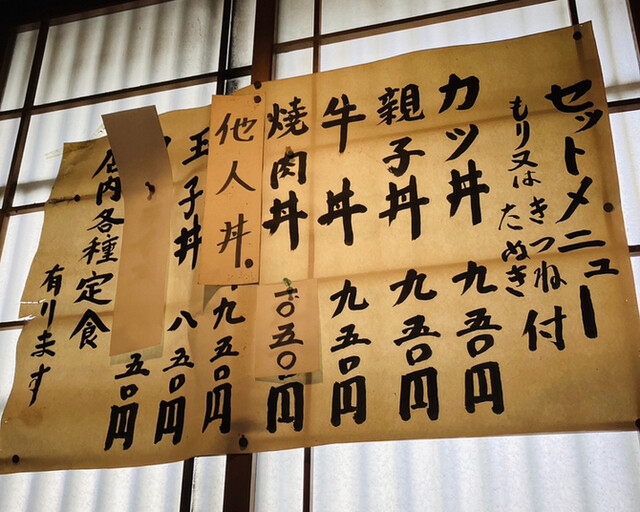 セットメニュー
もり又はきつね
たぬき
付
カツ丼 九五〇円
親子丼 九五〇円
牛丼 九五〇円
焼肉丼 一〇五〇円
他人丼 九五〇円
玉子丼 八五〇円
五〇円
店内各種定食
有ります